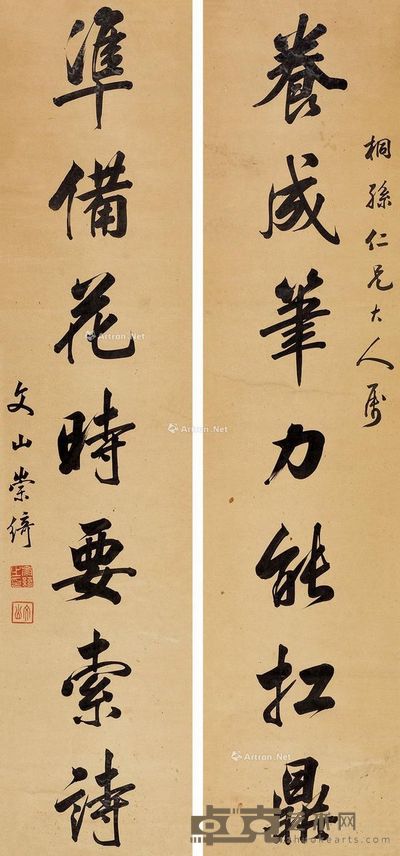 桐孫仁兄大人屬
養成筆力能扛鼎
準備花時要索詩
文山崇綺
Artron.Net
Artron.Net
Artron.Net